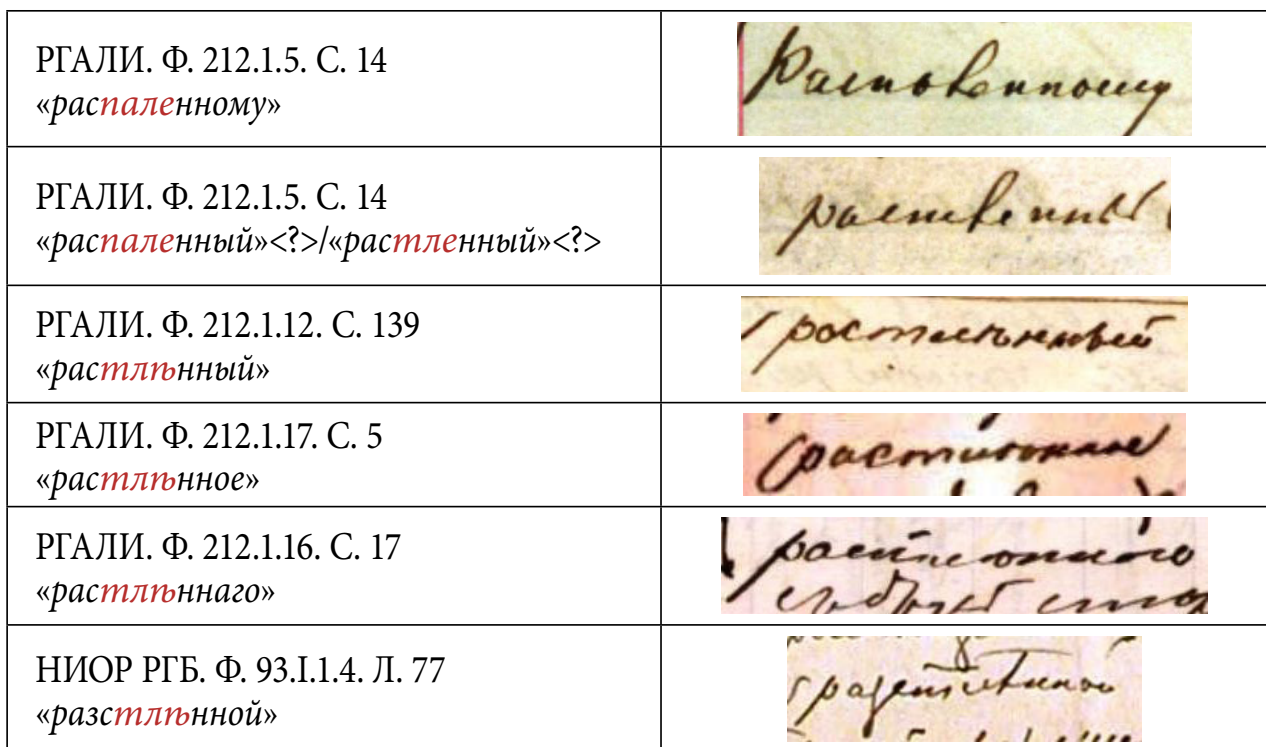 РГАЛИ. Ф. 212.1.5. С. 14
«распаленному»
РГАЛИ. Ф. 212.1.5. С. 14
«распаленный»<?>/«растленный»<?>
РГАЛИ. Ф. 212.1.12. С. 139
«растлѣнный»
растлѣнный
РГАЛИ. Ф. 212.1.17. С. 5
«растлѣнное»
растлѣнное
РГАЛИ. Ф. 212.1.16. С. 17
«растлѣннаго»
растлѣннаго
НИОР РГБ. Ф. 93.I.1.4. Л. 77
«разстлѣнной»
разстлѣнной